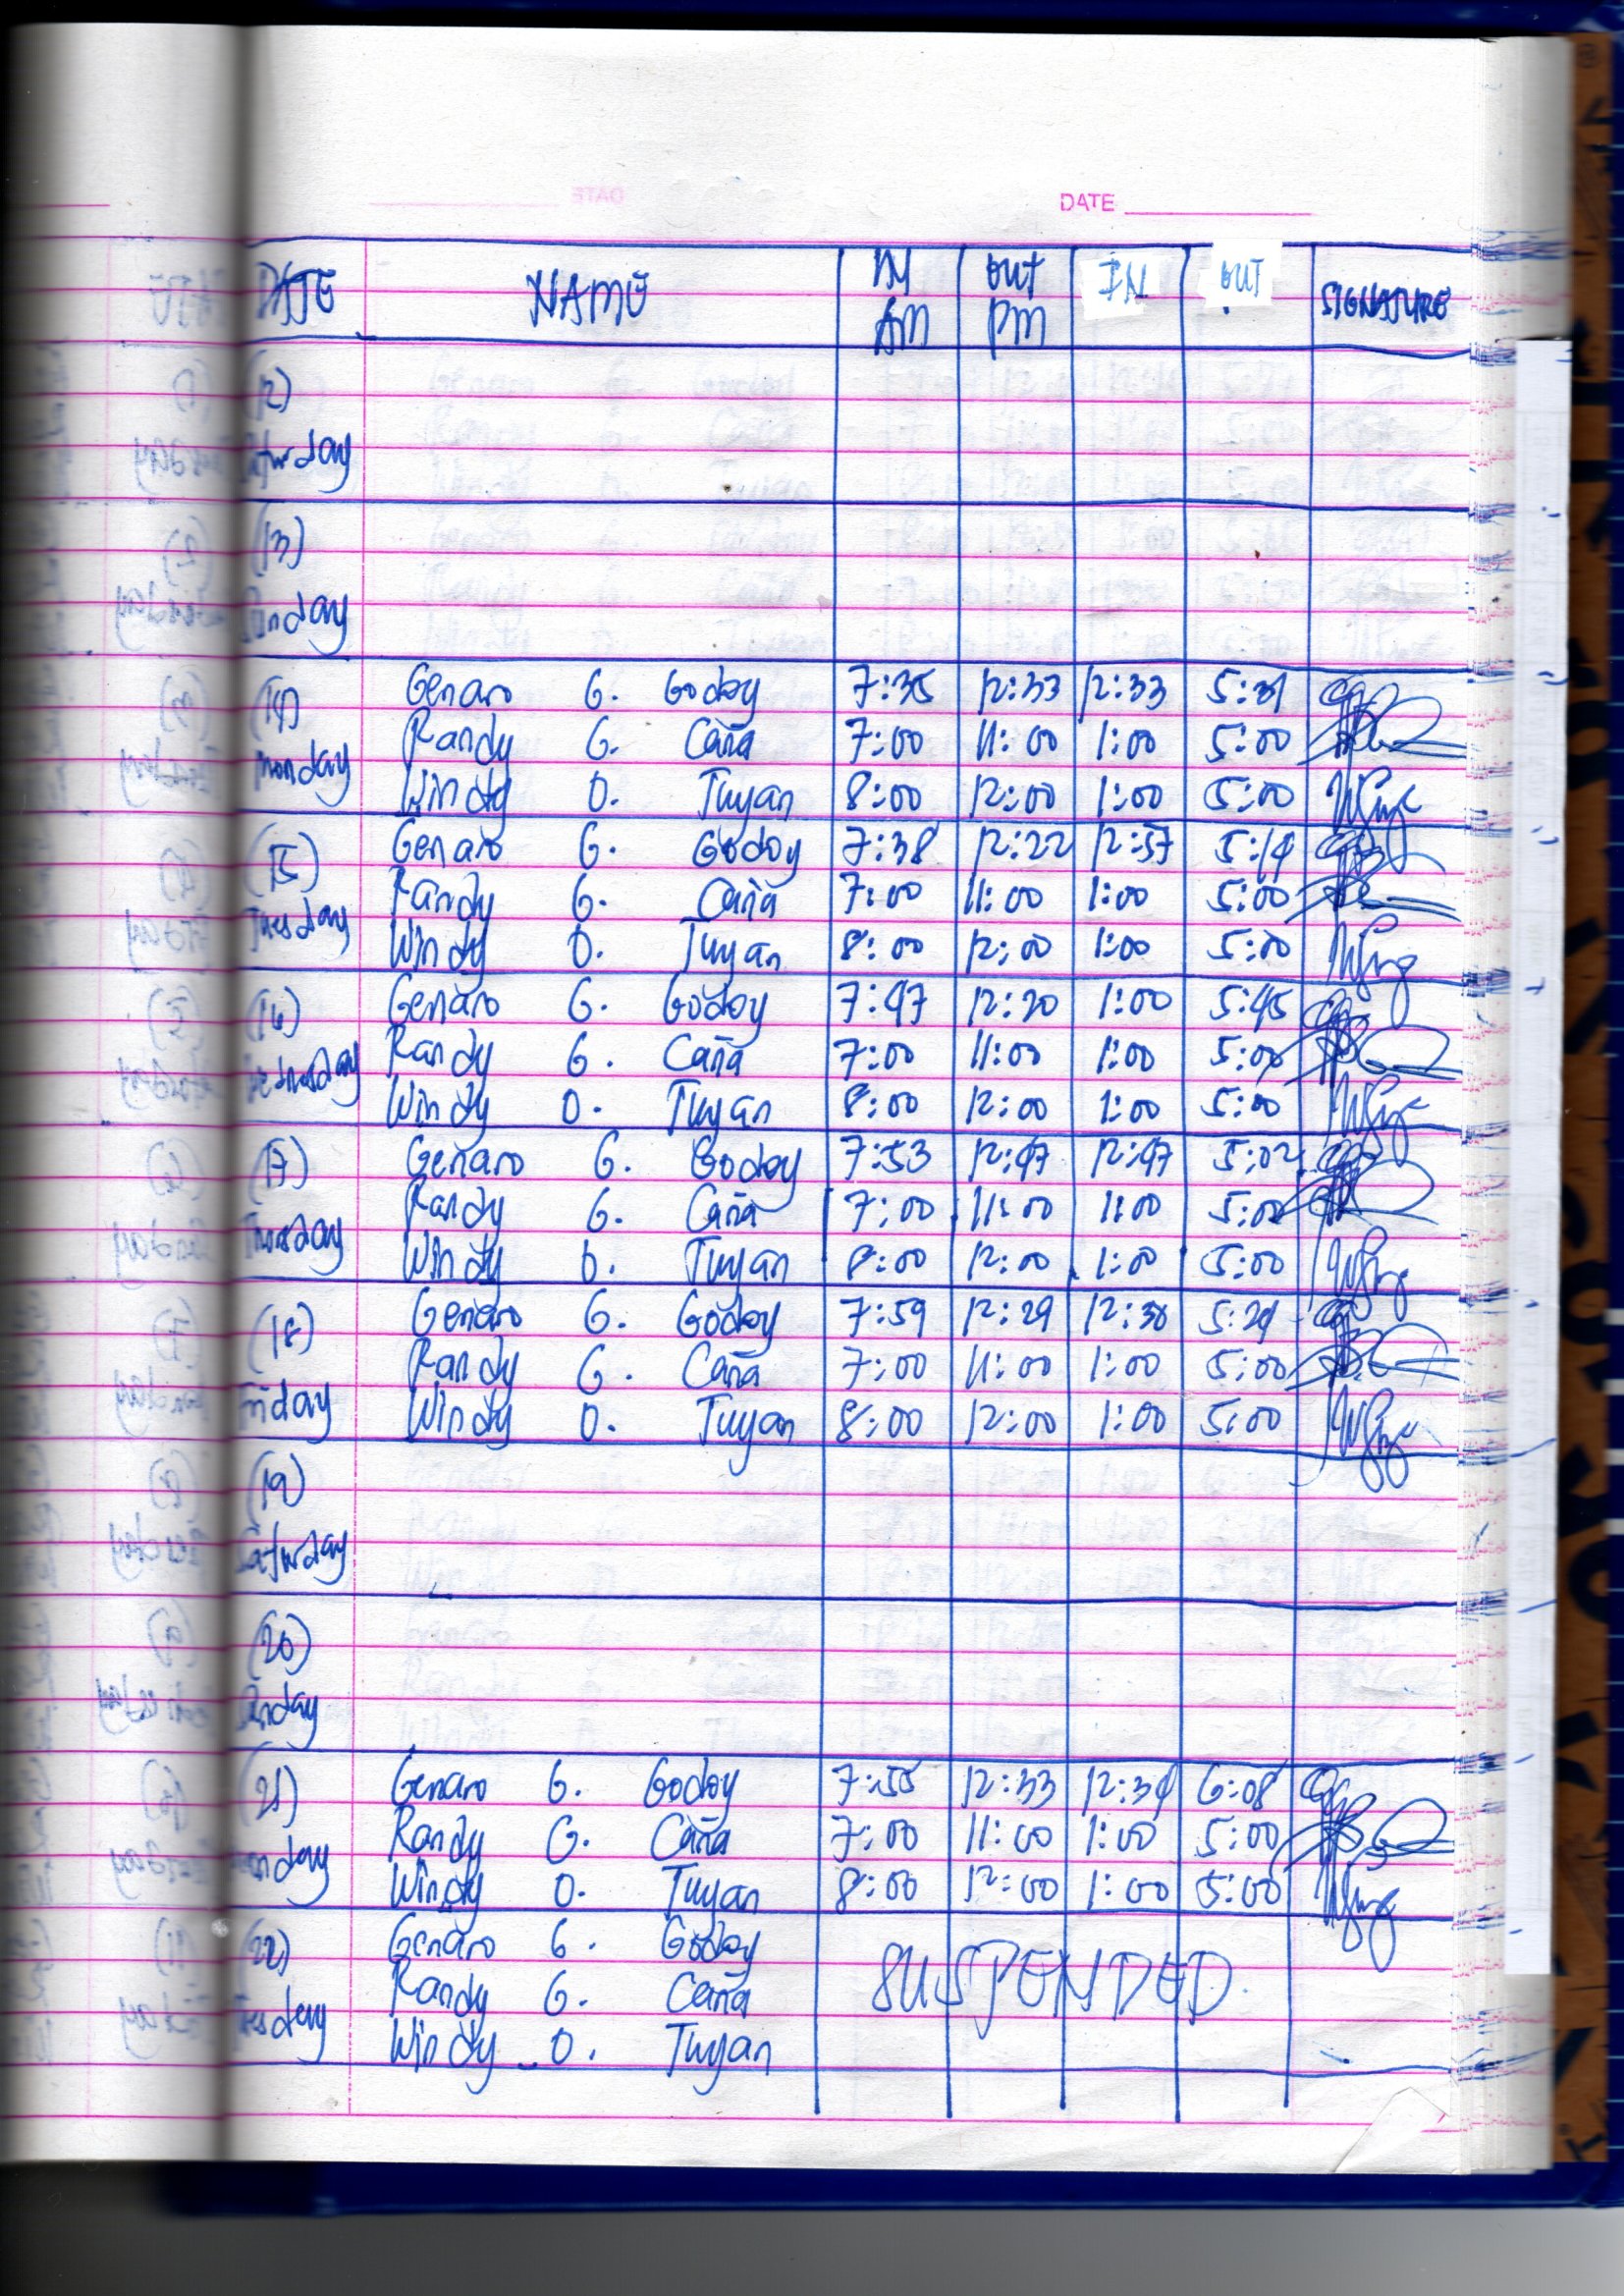 DATE
DATE NAME IN AM OUT PM IN OUT SIGNATURE
(12) Saturday
(13) Sunday
(14) Monday
Genaro G. Godoy 7:35 12:33 12:33 5:31
Randy G. Caña 7:00 11:00 1:00 5:00
Windy O. Tuyan 8:00 12:00 1:00 5:00
(15) Tuesday
Genaro G. Godoy 7:38 12:22 12:57 5:14
Randy G. Caña 7:00 11:00 1:00 5:00
Windy O. Tuyan 8:00 12:00 1:00 5:00
(16) Wednesday
Genaro G. Godoy 7:47 12:20 1:00 5:45
Randy G. Caña 7:00 11:00 1:00 5:00
Windy O. Tuyan 8:00 12:00 1:00 5:00
(17) Thursday
Genaro G. Godoy 7:53 12:47 12:47 5:02
Randy G. Caña 7:00 11:00 1:00 5:00
Windy O. Tuyan 8:00 12:00 1:00 5:00
(18) Friday
Genaro G. Godoy 7:59 12:29 12:30 5:24
Randy G. Caña 7:00 11:00 1:00 5:00
Windy O. Tuyan 8:00 12:00 1:00 5:00
(19) Saturday
(20) Sunday
(21) Monday
Genaro G. Godoy 7:55 12:33 12:34 6:08
Randy G. Caña 7:00 11:00 1:00 5:00
Windy O. Tuyan 8:00 12:00 1:00 5:00
(22) Tuesday
Genaro G. Godoy
Randy G. Caña SUSPENDED
Windy O. Tuyan